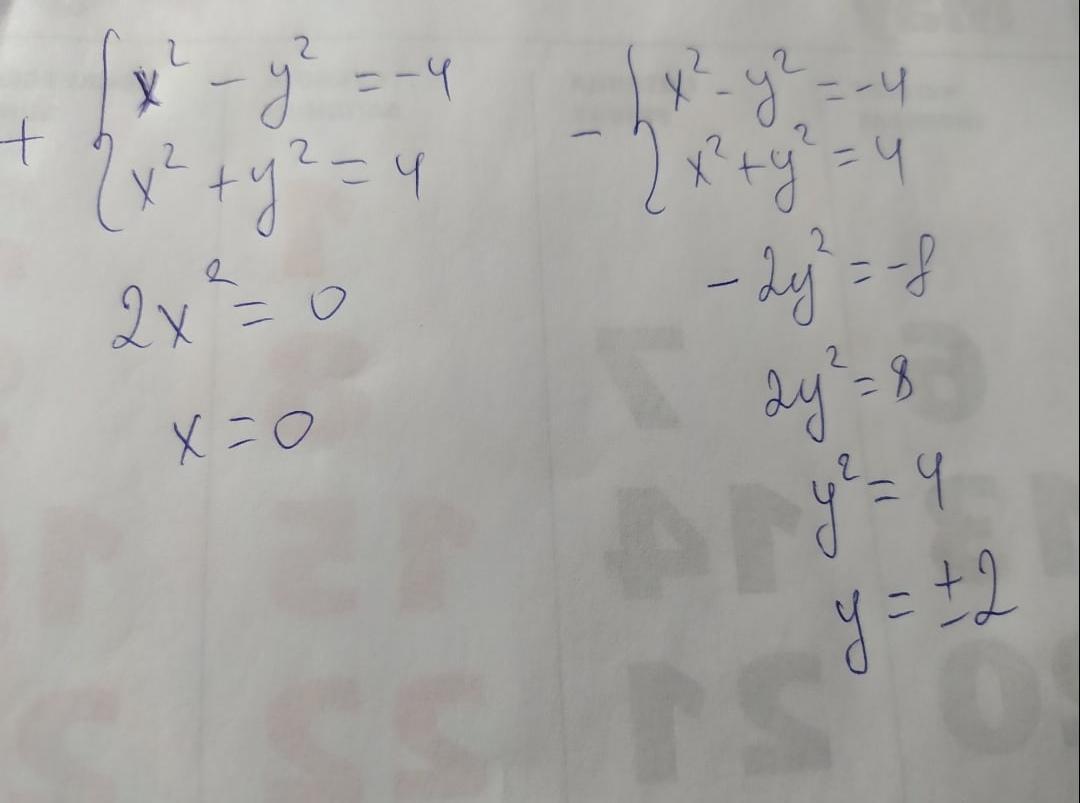 + { x² - y² = -4
x² + y² = 4
2x² = 0
x = 0
- { x² - y² = -4
x² + y² = 4
- 2y² = -8
2y² = 8
y² = 4
y = ±2